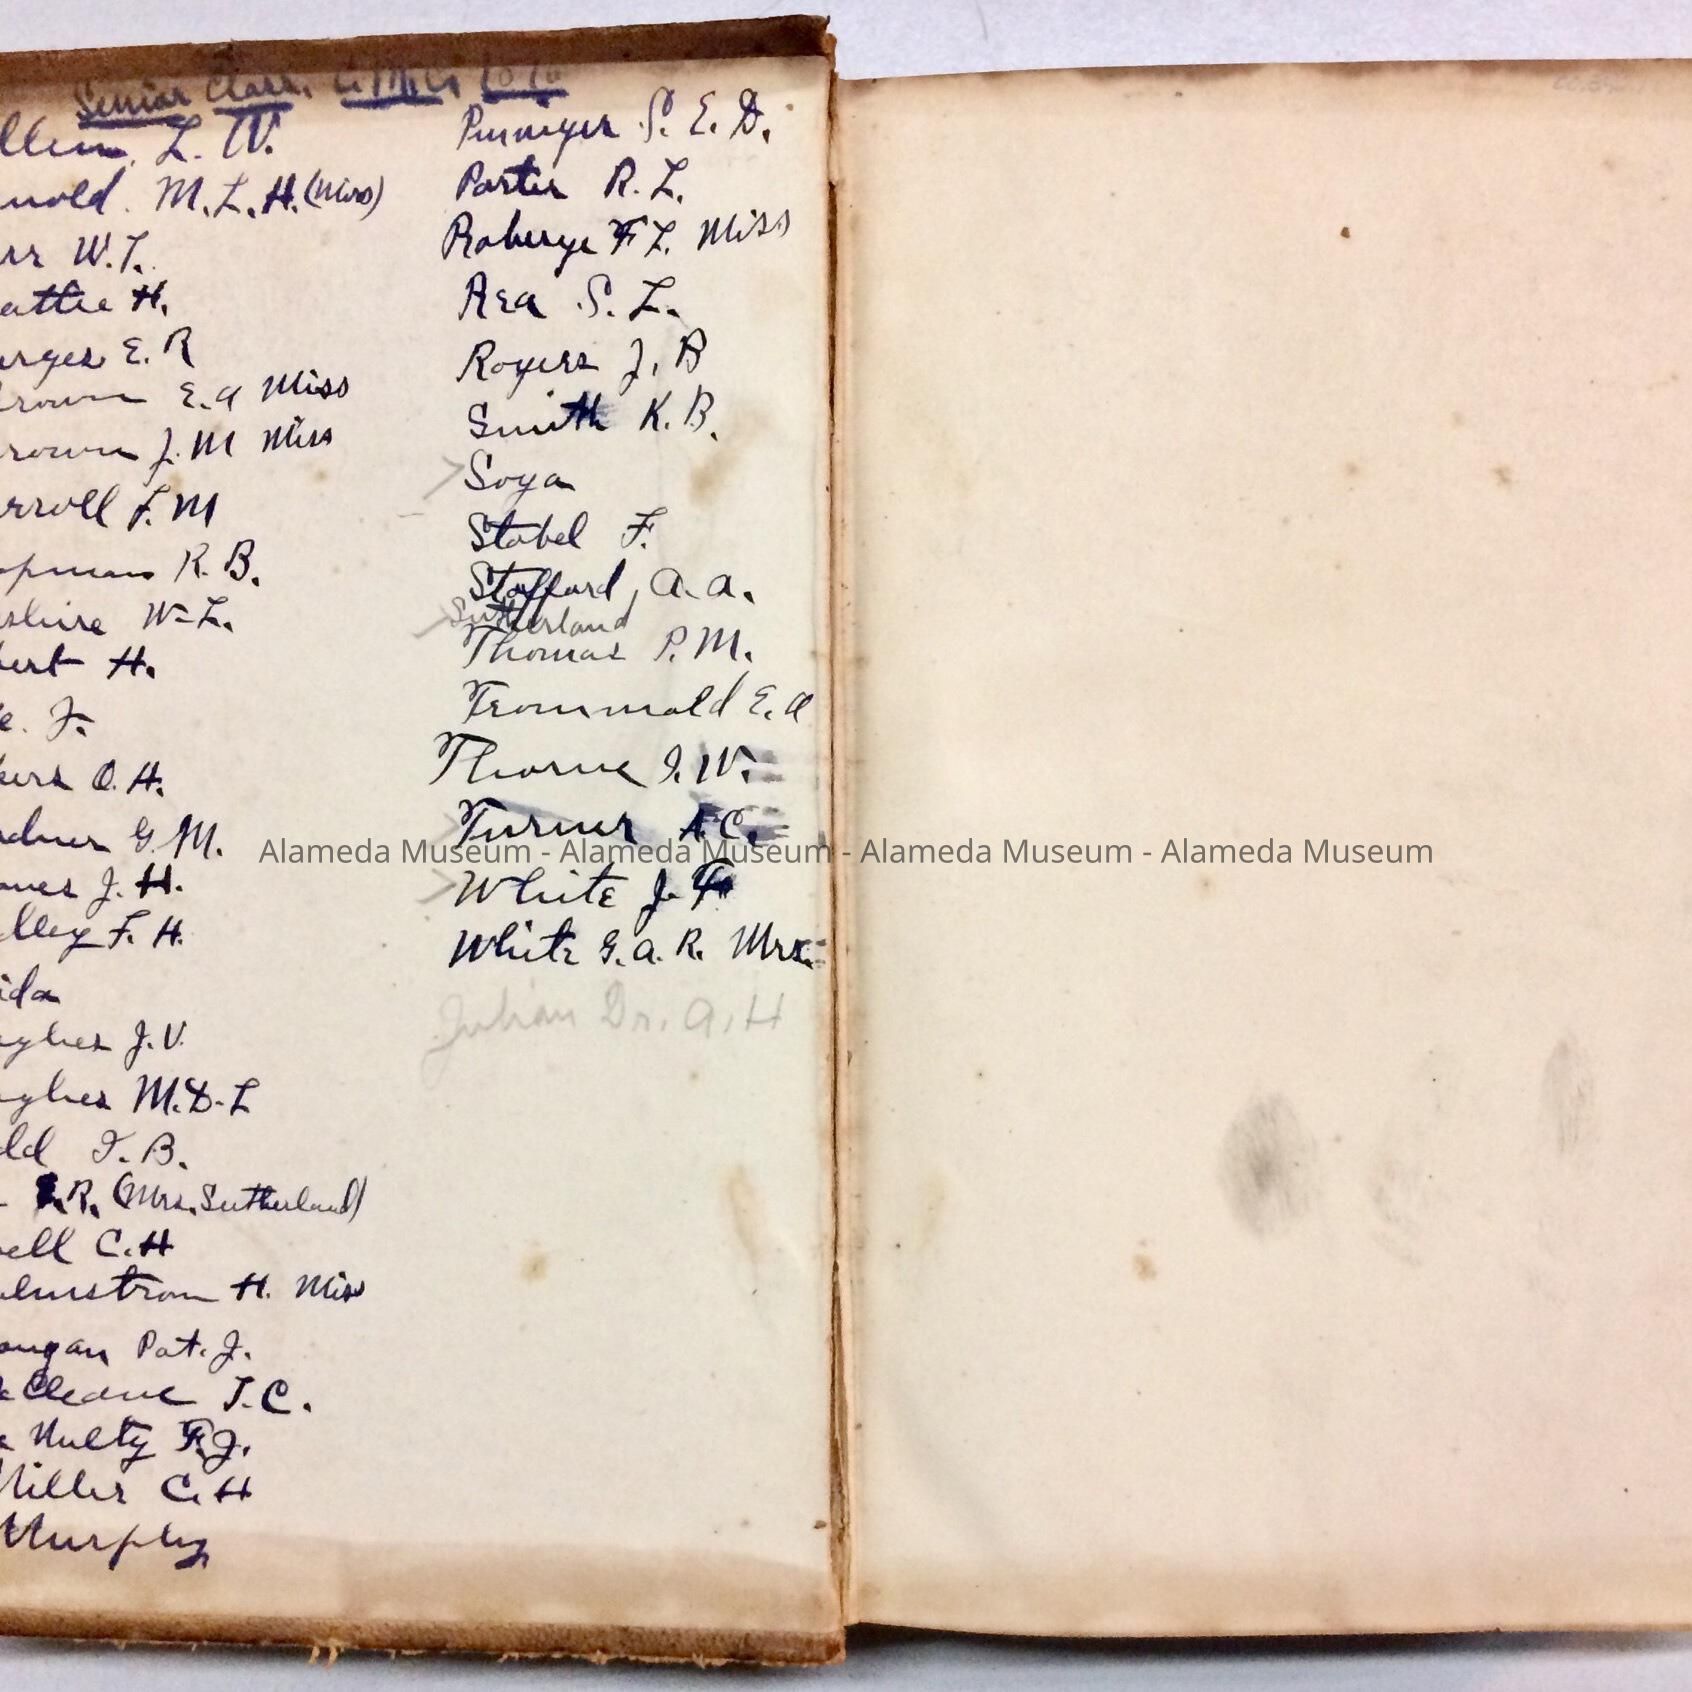 Senior Class. C.M.C.
llen, L. W.
nold. M.L.H. (Miss)
rr W.T.
attie H.
urges E. R
rown E.A Miss
rown J.M Miss
rroll F. M
apman R. B.
shire W-L.
bert H.
e. F.
kers O. H.
dner G. M.
ones J. H.
lley F. H.
ida
ughes J. V.
ughes M.D-L
ld F. B.
R. (Mrs. Sutherland)
ell C. H
lmstrom H. Miss
ongan Pat. J.
cCleave T. C.
c Nulty F. J.
Miller C. H
Murphy
S. E. D.
Porter R. L.
Roberge F L. Miss
Rea S. L.
Rogers J. B
Smith K. B.
> Soya
Stabel F.
Stafford, A. A.
Sutherland
Thomas P. M.
Trommald E. A
Thorne I. W.
Turner A. C.
> White J. F
White G. A. R. Mrs.
Julian Dr. A. H
Alameda Museum - Alameda Museum - Alameda Museum - Alameda Museum